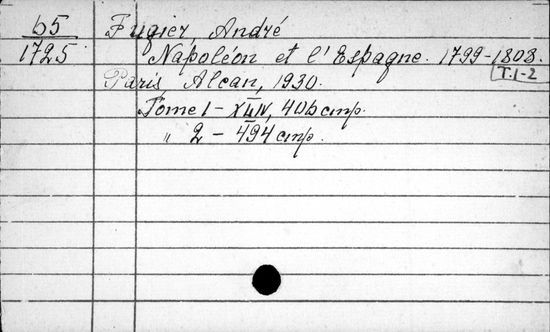 65 Fugier, André
1725 Napoléon et l'Espagne. 1799-1808.
T.1-2
Paris, Alcan, 1930.
Tome 1 - XLIV, 406 стр.
" 2 - 494 стр.